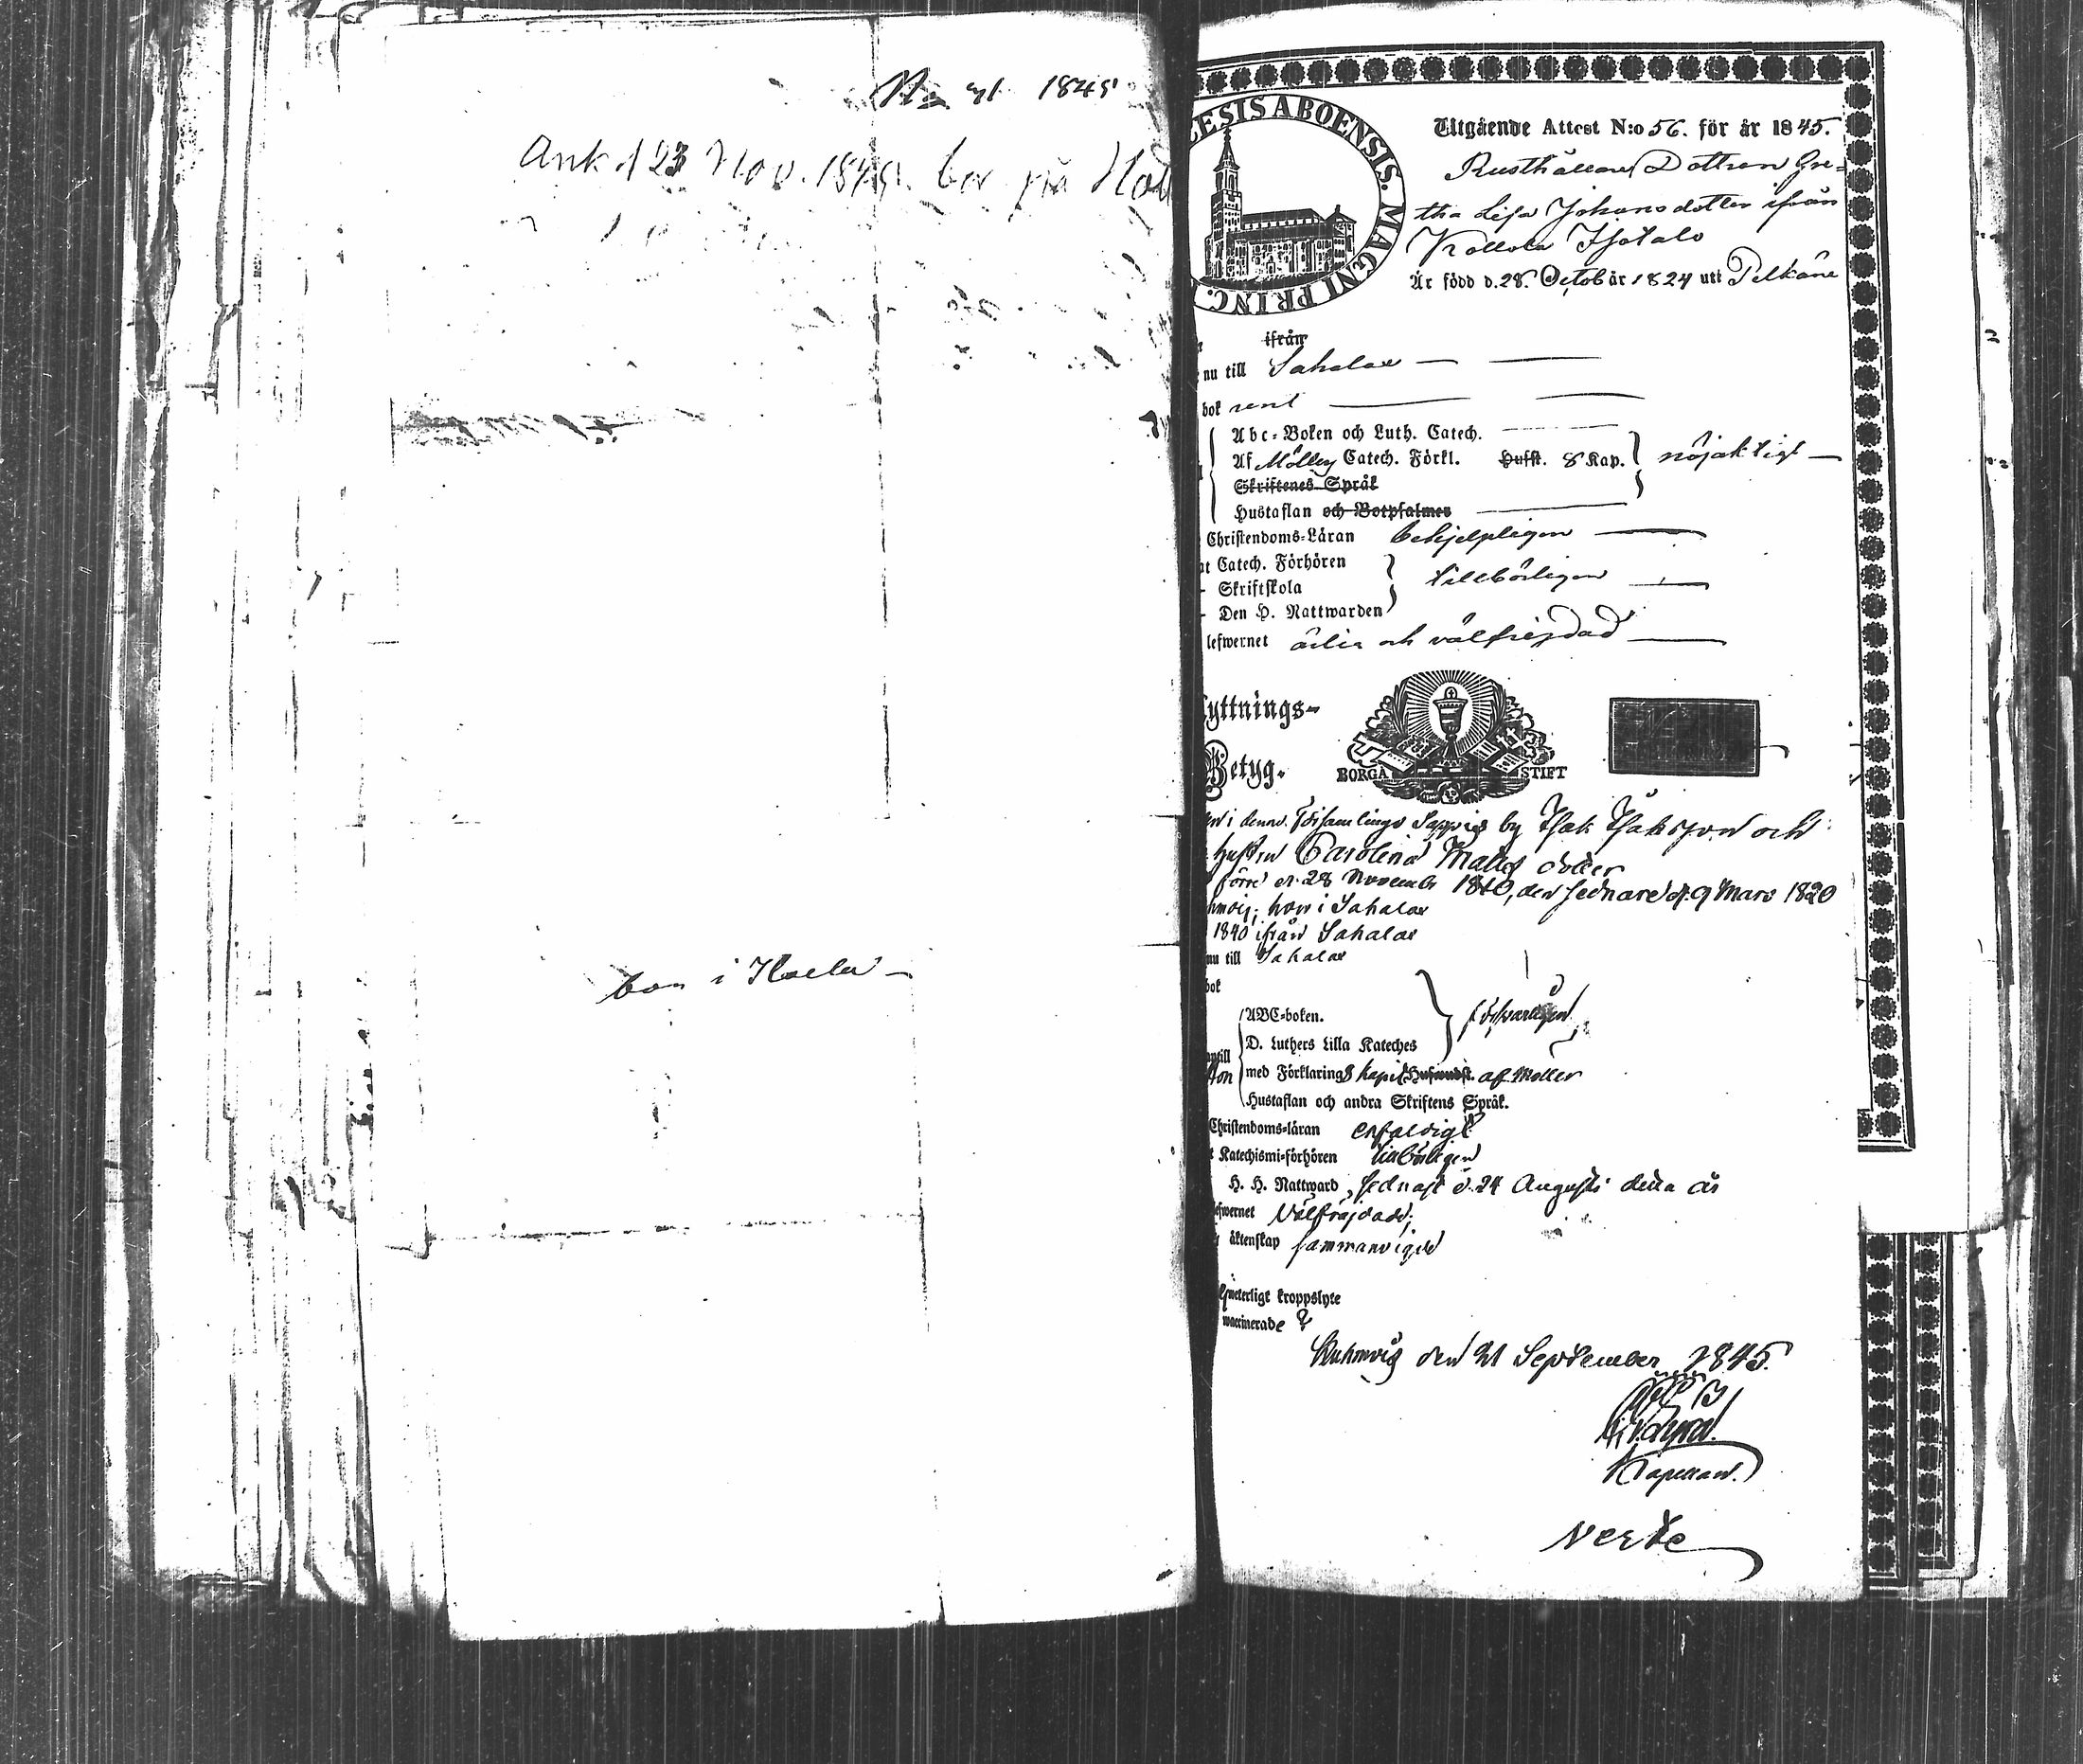 No 41 1845
Ank d 23 Nov. 1845. bor på
bor i
ESIS ABOENSIS. MAGNI PRINC.
Utgående Attest N:o 56. för år 1845.
Rusthållare Dottren Gre-
tha Lisa Johansdotter ifrån
Kollola Isotalo
Är född d. 28. Octob år 1824 uti Pelkäne
ifrån
nu till Sahalax
bok rent
Abc-Boken och Luth. Catech.
Af Möllers Catech. Förkl. Hufst. 8 Kap. nöjaktigt
Skriftenes Språk
Hustaflan och Botpsalmer
Christendoms-Läran behjelpligen
Catech. Förhören
Skriftskola tillbörligen
Den H. Nattwarden
lefwernet ärlig och välfrejdad
yttnings-
Betyg.
BORGÅ STIFT
i denna Församlings Sappis by Isak Isaksson och
Hustru Carolina Matts dotter
förre d. 28 November 1810, den sednare d. 9 Mars 1820
hon i Sahalax
1840 ifrån Sahalax
nu till Sahalax
bok
ABC-boken. försvarligen
D. Luthers Lilla Kateches
med Förklaring 8 kapit Hufwudst. af Möller
Hustaflan och andra Skriftens Språk.
Christendoms-läran enfaldigt
Katechismi-förhören tillbörligen
H. H. Nattward, sednast d. 24 Augusti detta år
wernet Välfräjdade;
äktenskap sammanvigde
kroppslyte
waccinerade
Kuhmois den 21 September 1845.
Kapellan.
Verte